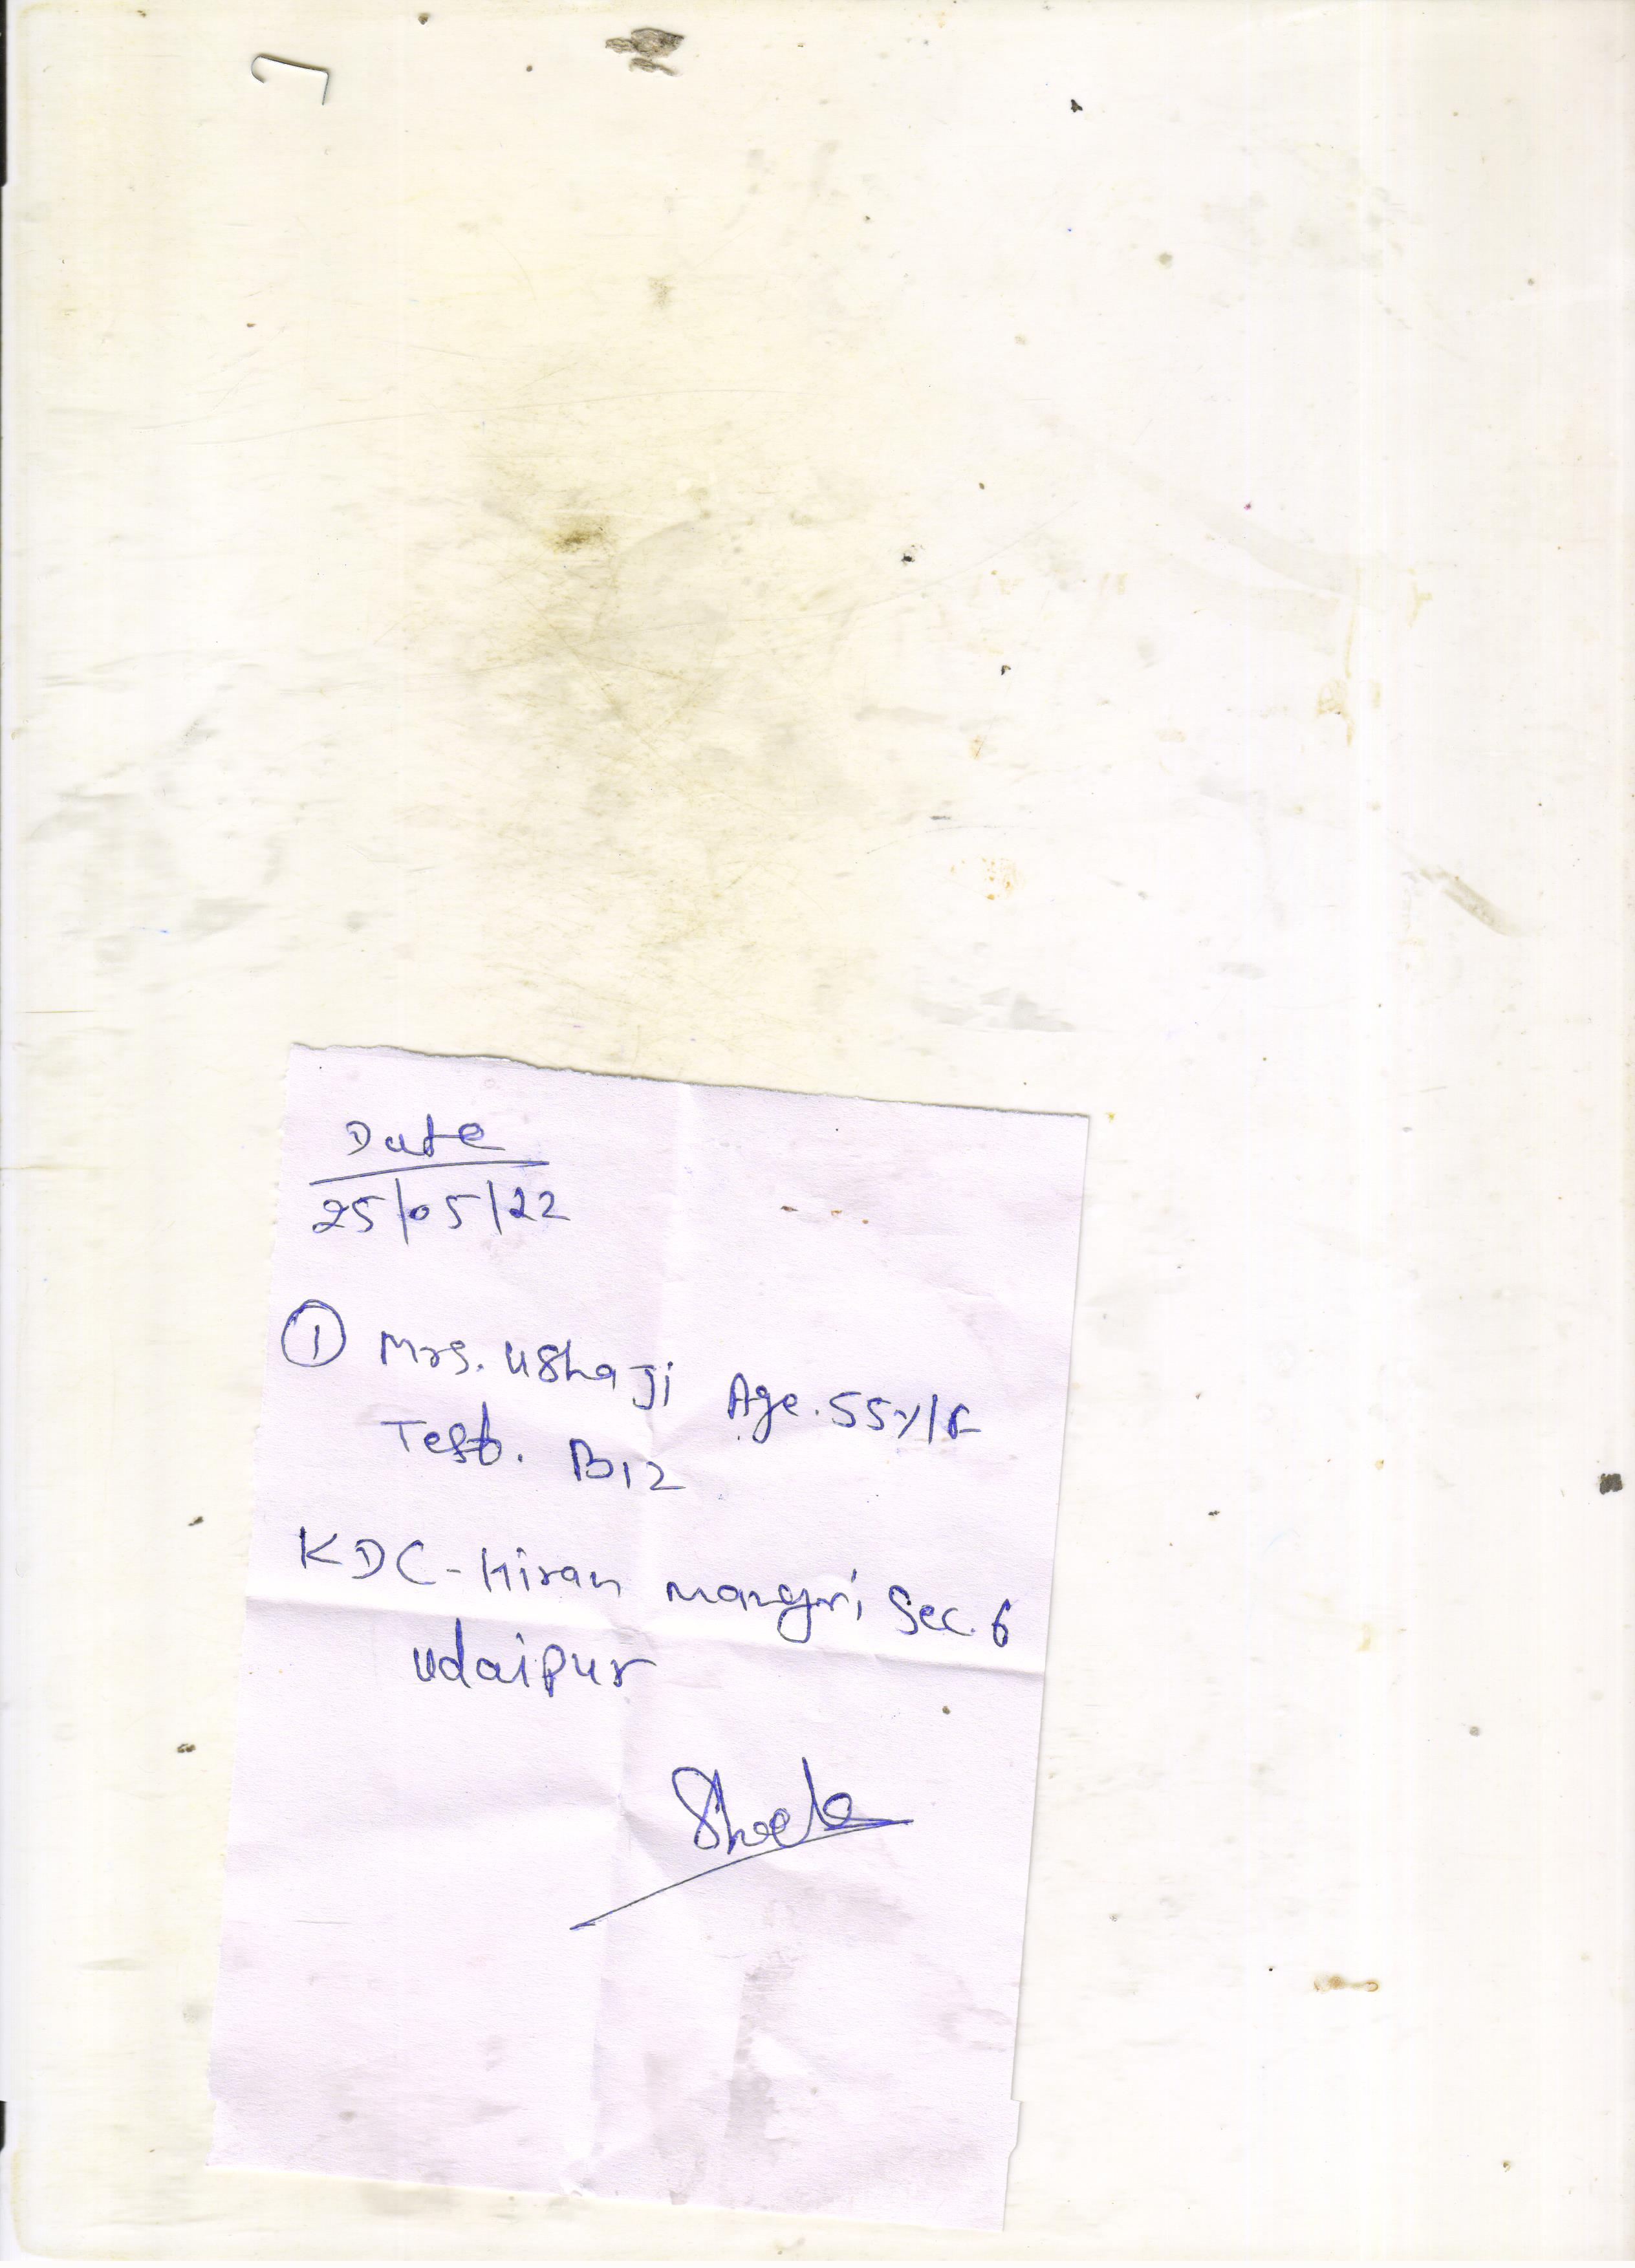 Date
25/05/22
① Mrs. Usha Ji Age. 55y/F
Test. B12
KDC - Hiran magri Sec. 6
Udaipur